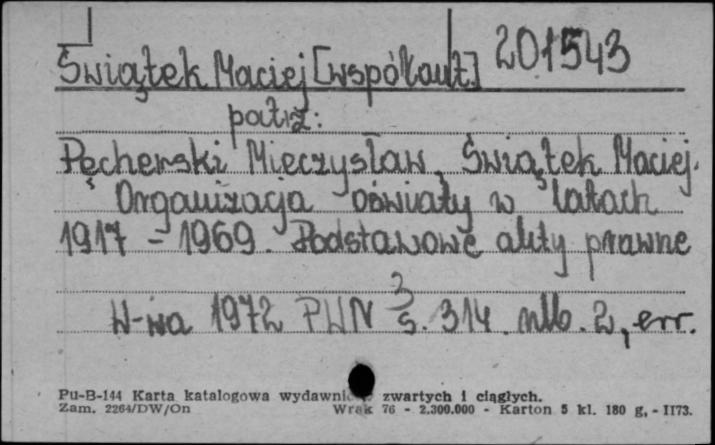 Świątek Maciej [współaut.] 201543
patrz:
Pęcherski Mieczysław, Świątek Maciej.
Organizacja oświaty w latach
1917 - 1969. Podstawowe akty prawne
W-wa 1972 PWN s. 314 nlb. 2, err.
Pu-B-144 Karta katalogowa zwartych i ciągłych.
Zam. 2264/DW/On Wrak 76 - 2.300.000 - Karton 5 kl. 180 g, - II73.